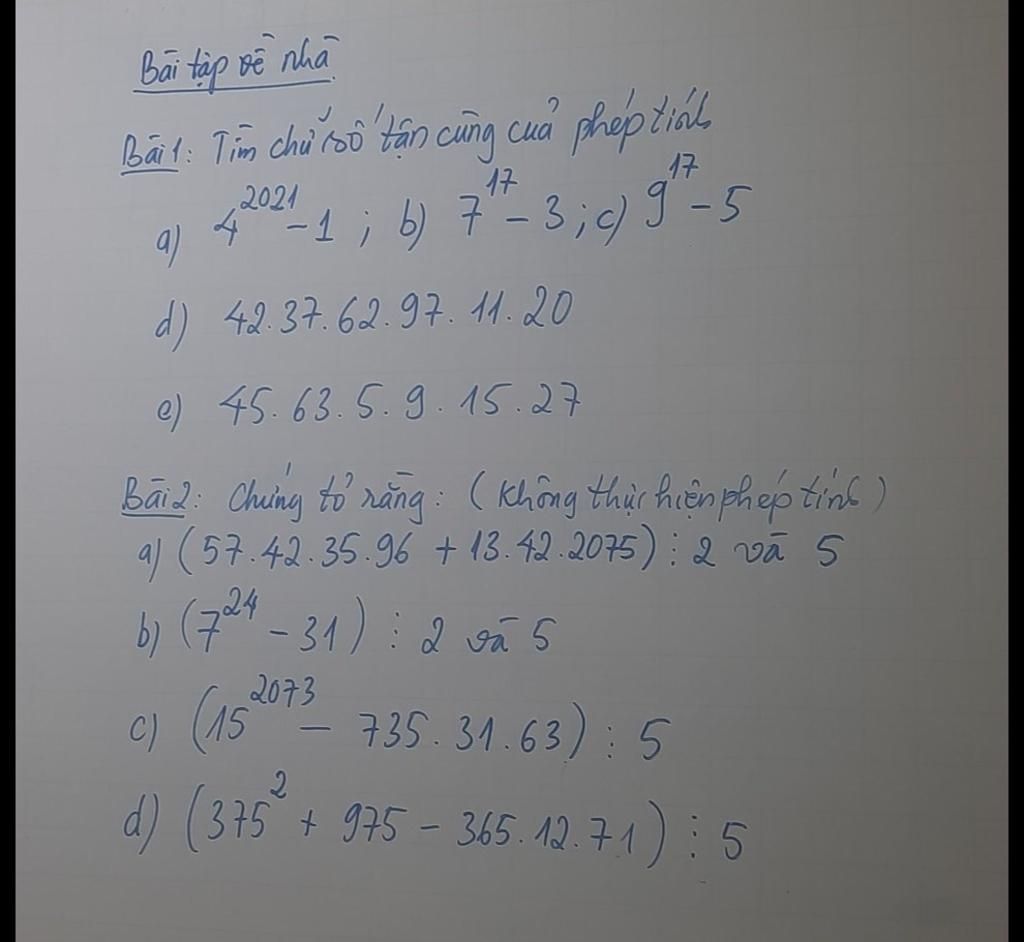 Bài tập về nhà
Bài 1: Tìm chữ số tận cùng của phép tính
a) 4^2021 - 1 ; b) 7^17 - 3 ; c) 9^17 - 5
d) 42.37.62.97.11.20
e) 45.63.5.9.15.27
Bài 2: Chứng tỏ rằng: (Không thực hiện phép tính)
a) (57.42.35.96 + 13.42.2075) ⋮ 2 và 5
b) (7^24 - 31) ⋮ 2 và 5
c) (15^2073 - 735.31.63) ⋮ 5
d) (375^2 + 975 - 365.12.71) ⋮ 5